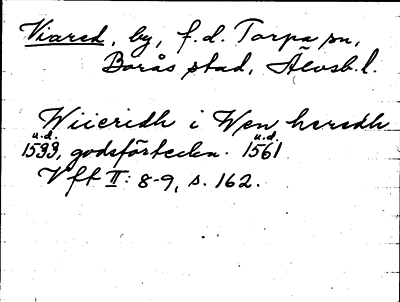 Viared, by, f.d. Torpa sn,
Borås stad, Älvsb.l.
Wiieridh i Wen heredh
u.d. u.d.
1533, godsförteckn. 1561
Vft II: 8-9, s. 162.